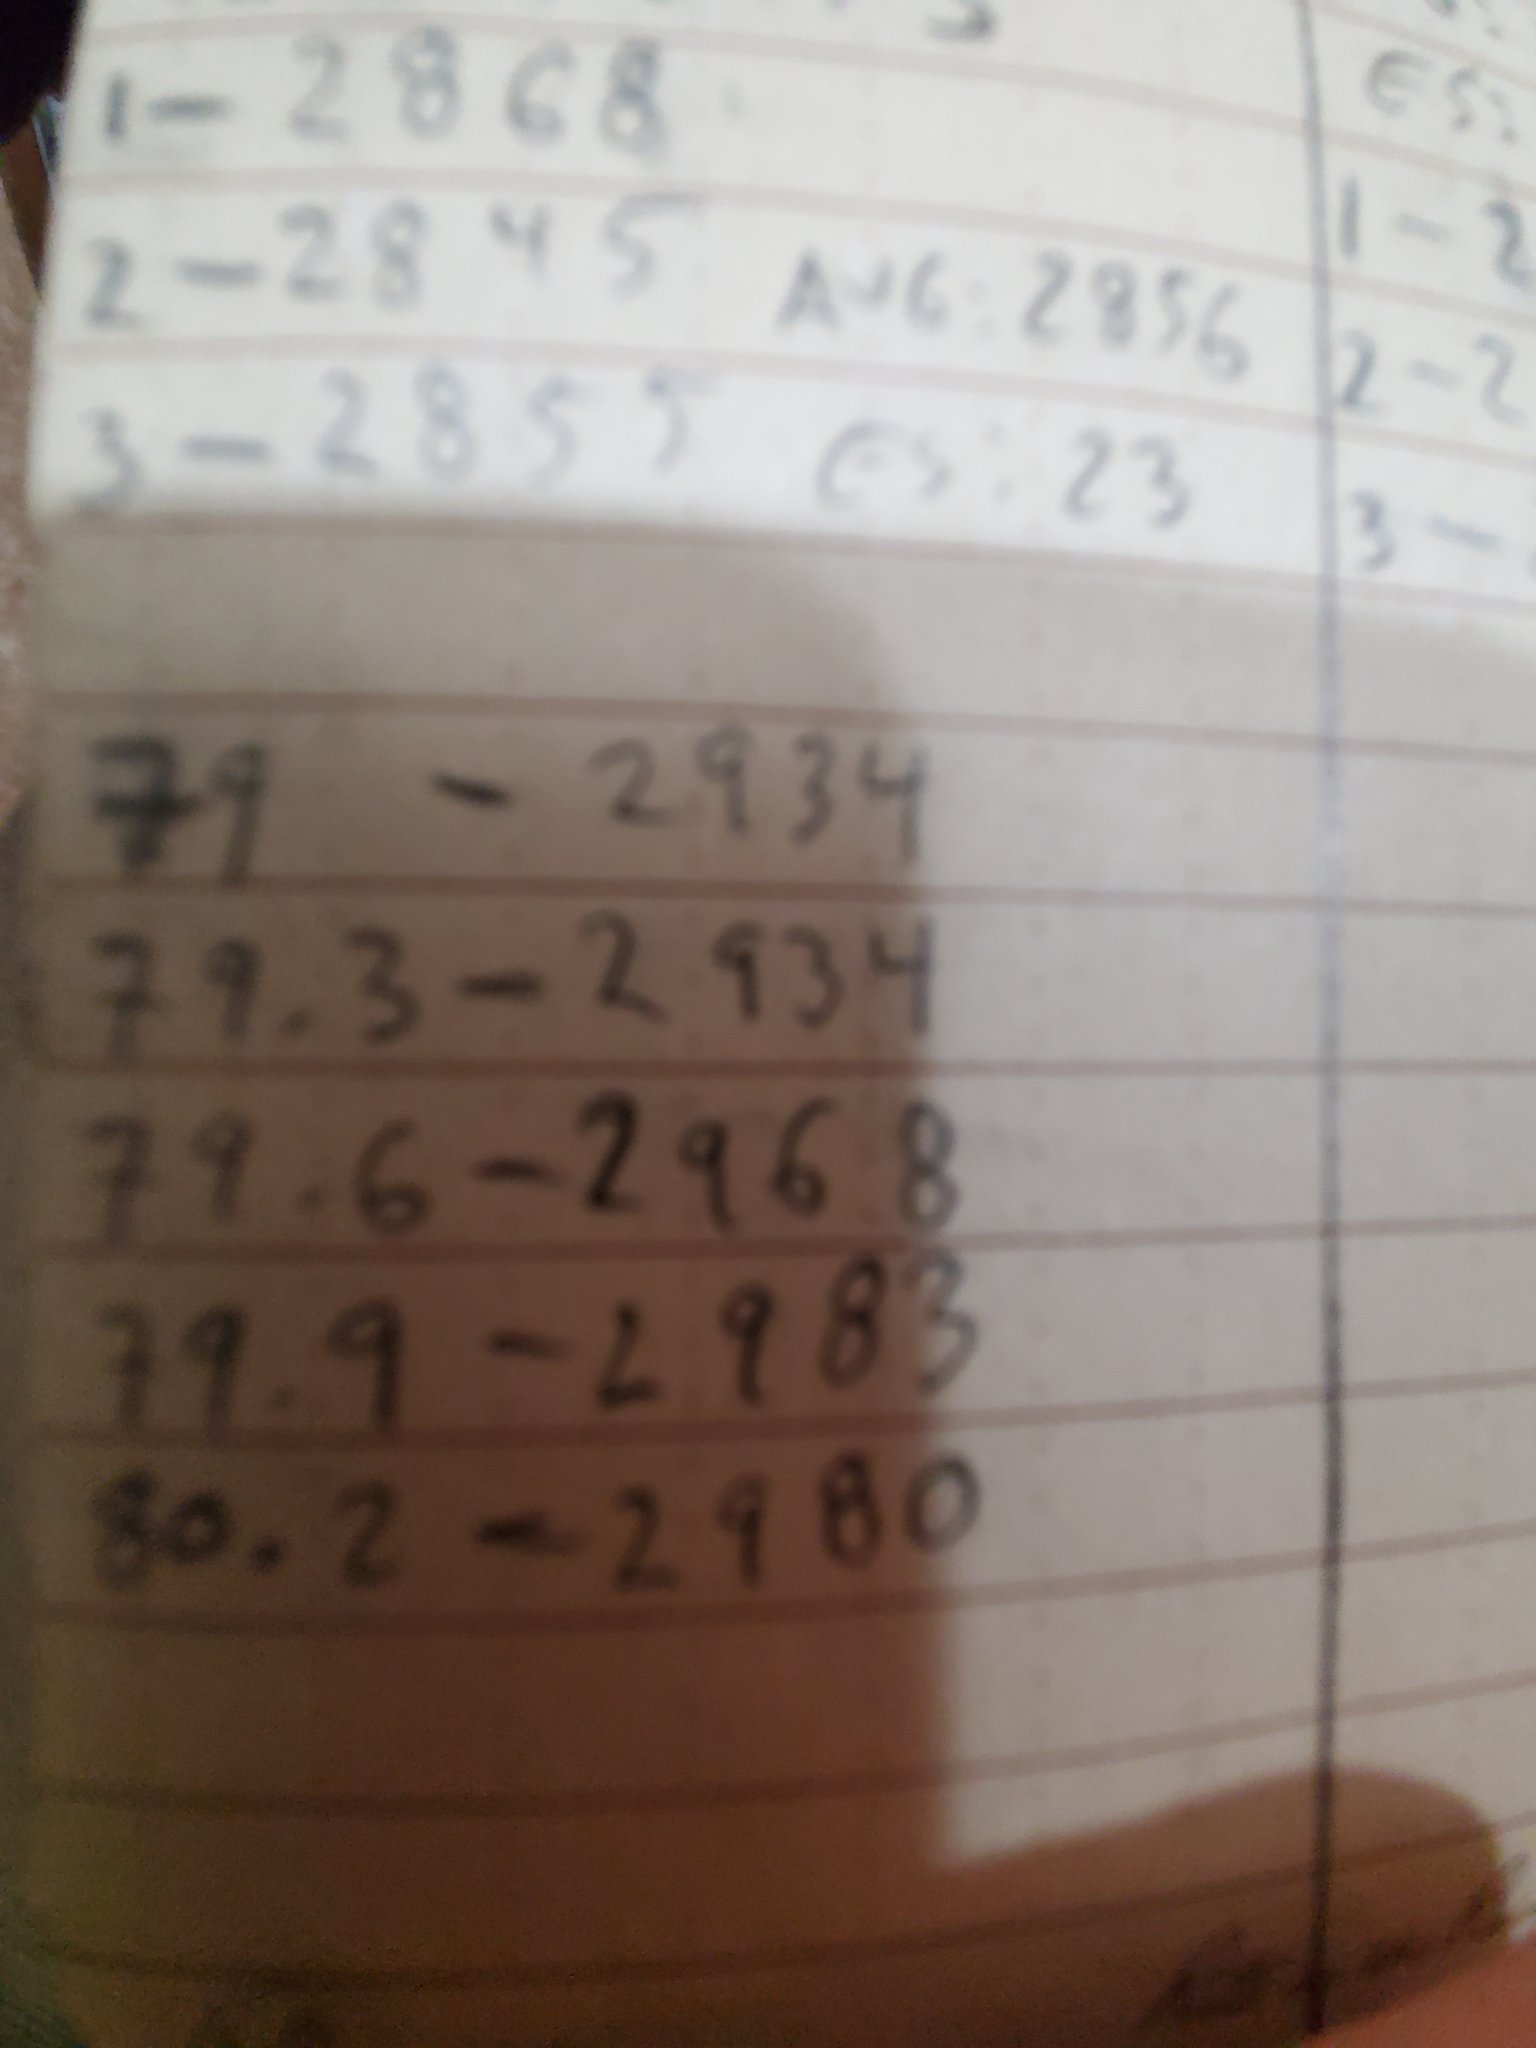 1-2868
2-2845 AVG: 2856
3-2855 ES: 23
79 - 2934
79.3-2934
79.6-2968
79.9-2983
80.2-2980
ES:
1-2
2-2
3-